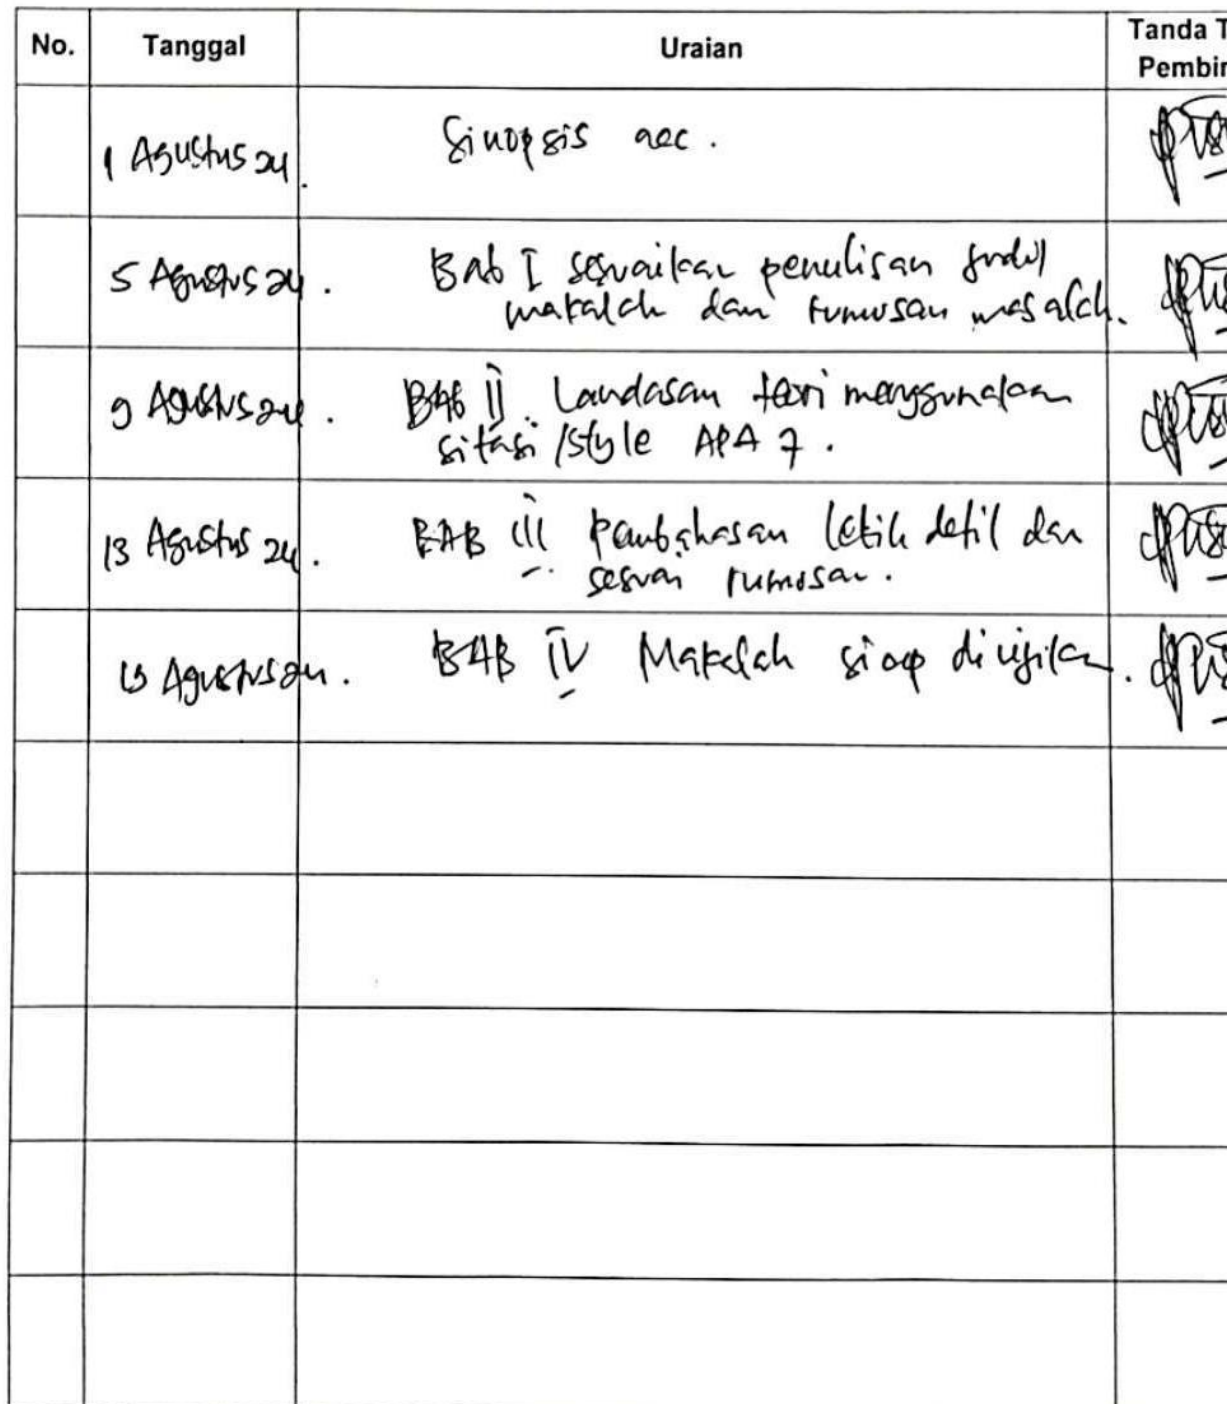 No. Tanggal Uraian Tanda T
Pembir
1 Agustus 24. Sinopsis acc.
5 Agustus 24. Bab I sesuaikan penulisan judul
makalah dan rumusan masalah.
9 Agustus 24. BAB II. Landasan teori menggunakan
sitasi/style APA 7.
13 Agustus 24. BAB III Pembahasan lebih detil dan
sesuai rumusan.
Agustus 24. BAB IV Makalah siap diujikan.